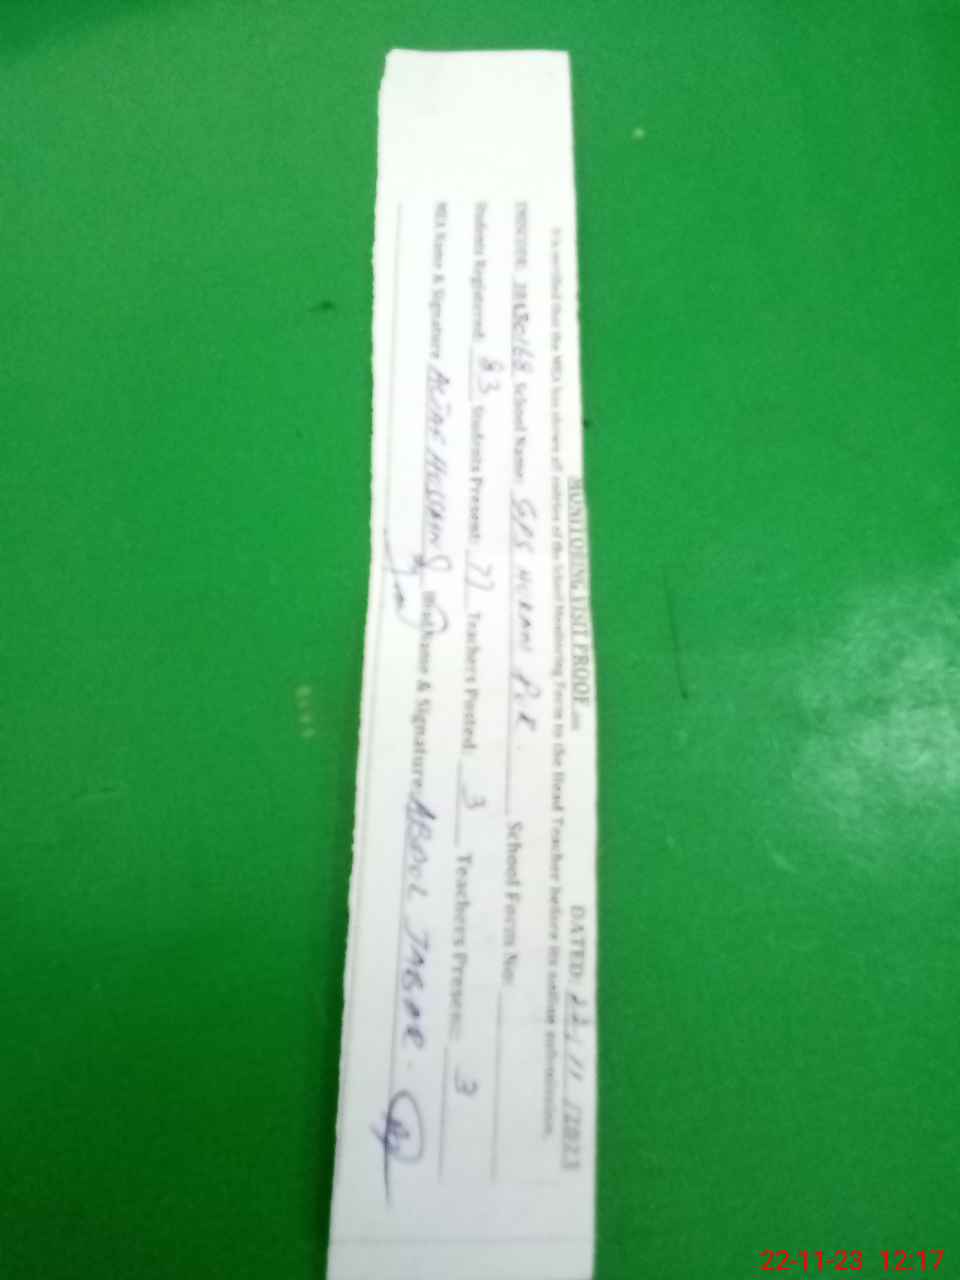 MONITORING VISIT PROOF DATED: 22/11/2023
It is verified that the MEA has shown all entries of the School Monitoring Form to the Head Teacher before its online submission.
School Name: GPS PUR School Form No:
Students Registered: 83 Students Present: 77 Teachers Posted: 3 Teachers Present: 3
MEA Name & Signature HUSSAIN Name & Signature ABDUL JABAR
22-11-23 12:17